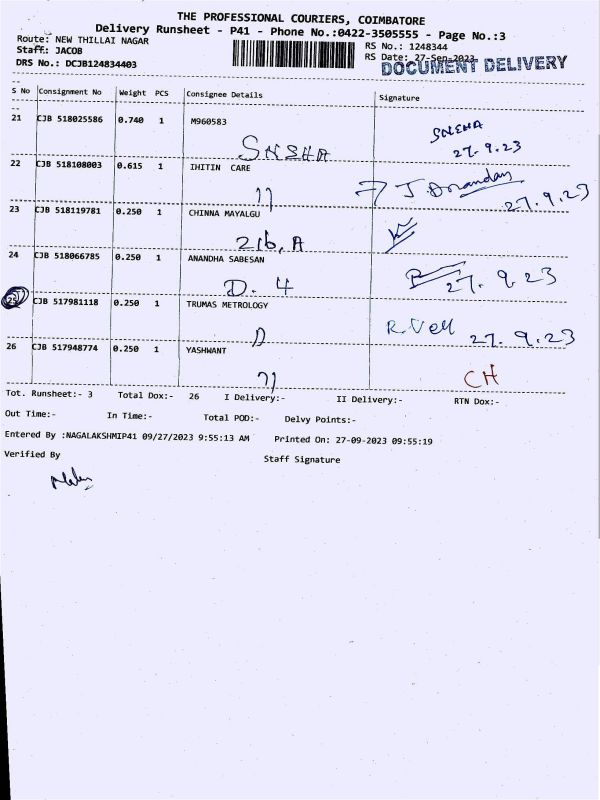 THE PROFESSIONAL COURIERS, COIMBATORE
Delivery Runsheet - P41 - Phone No.:0422-3505555 - Page No.:3
Route: NEW THILLAI NAGAR
RS No.: 1248344
Staff: JACOB
RS Date: 27-Sep-2023
DRS No.: DCJB124834403
DOCUMENT DELIVERY
S No Consignment No Weight PCS Consignee Details Signature
21 CJB 518025586 0.740 1 M960583
SNEHA
27.9.23
SNSHA
22 CJB 518108003 0.615 1 IHITIN CARE
J Anandan
27.9.23
23 CJB 518119781 0.250 1 CHINNA MAYALGU
216, A
24 CJB 518066785 0.250 1 ANANDHA SABESAN
27.9.23
D. 4
25 CJB 517981118 0.250 1 TRUMAS METROLOGY
R.Vell 27.9.23
D
26 CJB 517948774 0.250 1 YASHWANT
CH
Tot. Runsheet:- 3 Total Dox:- 26 I Delivery:- II Delivery:- RTN Dox:-
Out Time:- In Time:- Total POD:- Delvy Points:-
Entered By :NAGALAKSHMIP41 09/27/2023 9:55:13 AM Printed On: 27-09-2023 09:55:19
Verified By Staff Signature